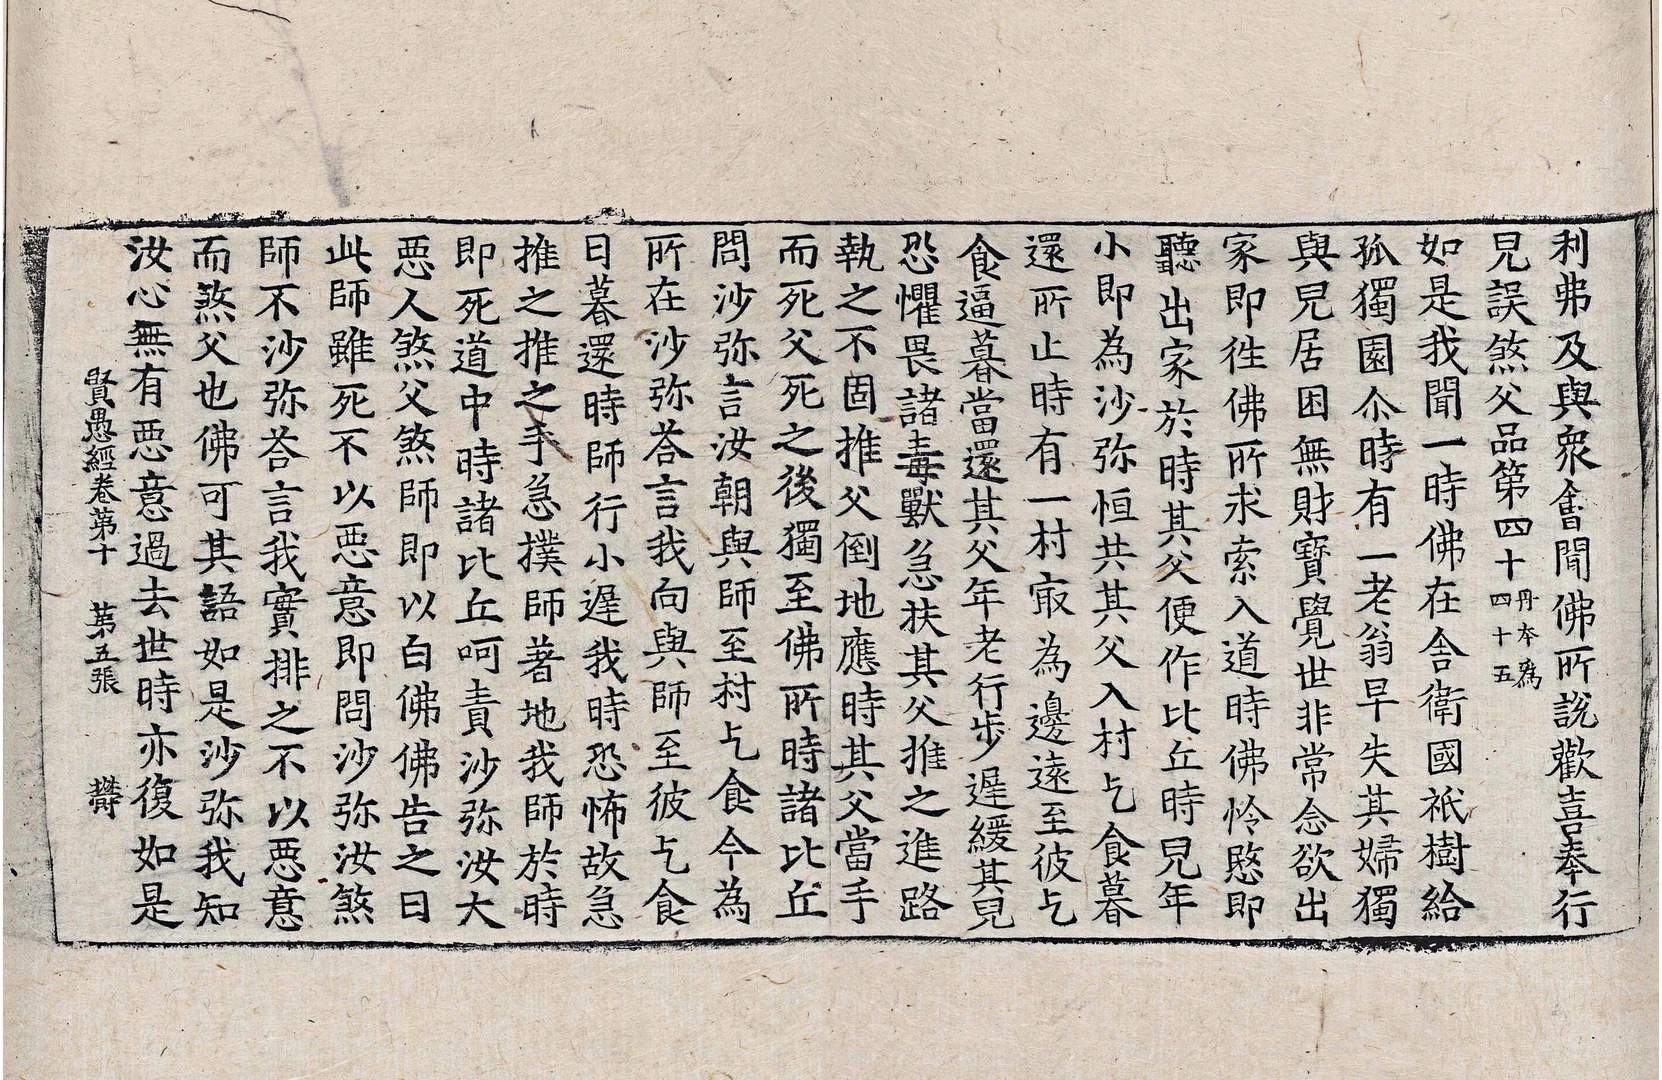 利弗及與衆會聞佛所說歡喜奉行
兒誤煞父品第四十丹本爲四十五
如是我聞一時佛在舍衛國祇樹給
孤獨園尒時有一老翁早失其婦獨
與兒居困無財寶覺世非常念欲出
家即徃佛所求索入道時佛怜愍即
聽出家於時其父便作比丘時兒年
小即為沙弥恒共其父入村乞食暮
還所止時有一村㝡為邊遠至彼乞
食逼暮當還其父年老行步遲緩其兒
恐懼畏諸毒獸急扶其父推之進路
執之不固推父倒地應時其父當手
而死父死之後獨至佛所時諸比丘
問沙弥言汝朝與師至村乞食今為
所在沙弥荅言我向與師至彼乞食
日暮還時師行小遲我時恐怖故急
推之推之手急撲師著地我師於時
即死道中時諸比丘呵責沙弥汝大
惡人煞父煞師即以白佛佛告之曰
此師雖死不以惡意即問沙弥汝煞
師不沙弥荅言我實排之不以惡意
而煞父也佛可其語如是沙弥我知
汝心無有惡意過去世時亦復如是
賢愚經卷第十 第五張 欎